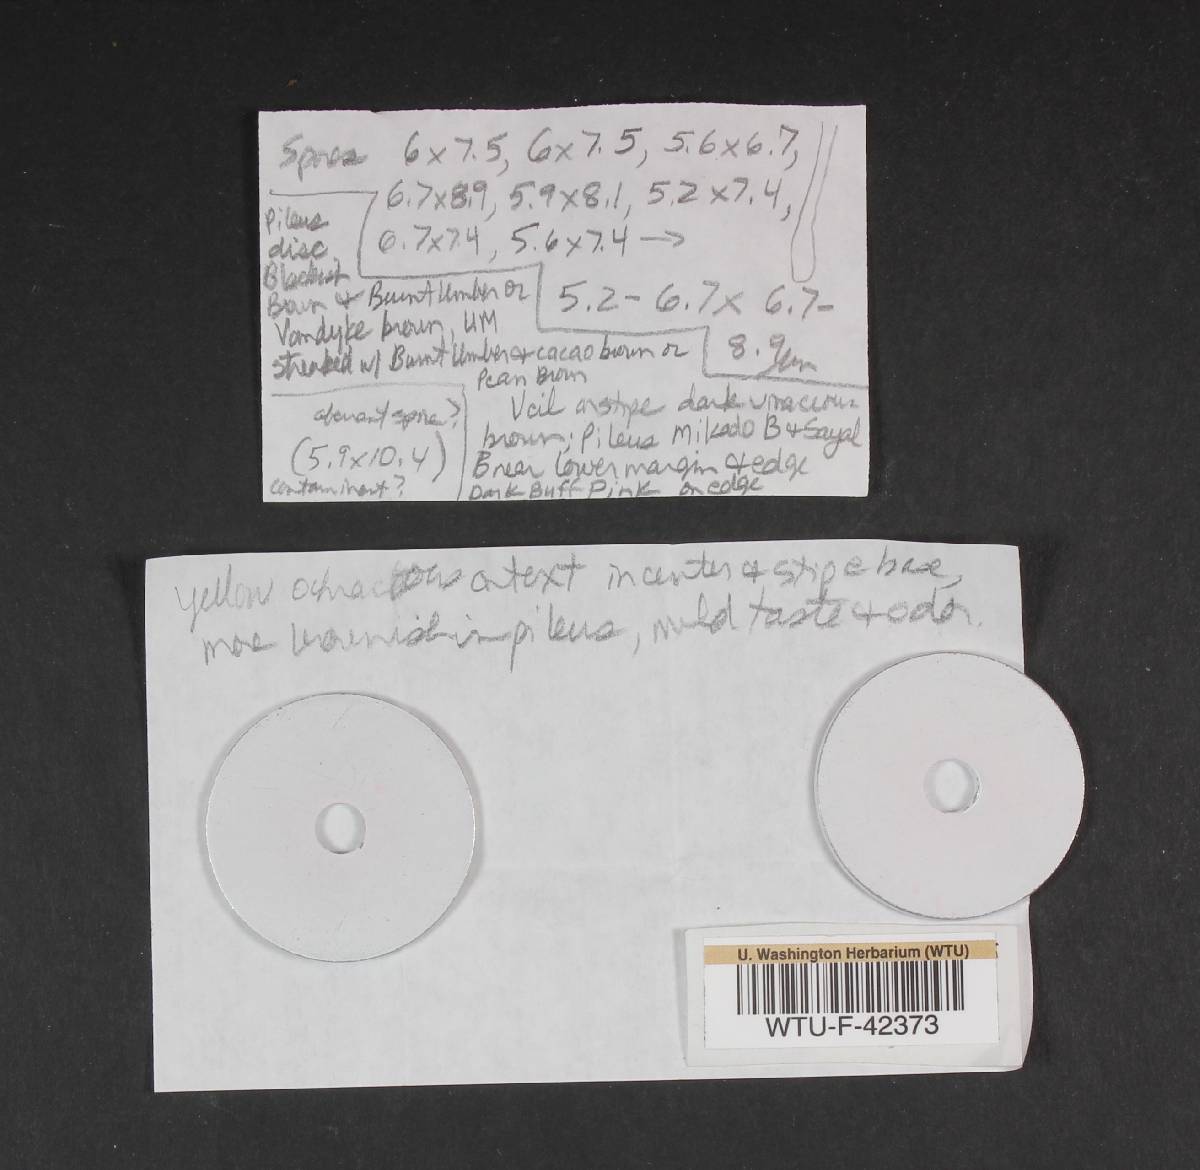 Spores 6 x 7.5, 6 x 7.5, 5.6 x 6.7,
6.7x8.9, 5.9 x 8.1, 5.2 x 7.4,
6.7x7.4, 5.6 x 7.4 →
5.2 - 6.7 x 6.7-
8.9 µm
Pileus
disc
Blackish
Brown & Burnt Umber or
Vandyke brown, UM
streaked w/ Burnt Umber & cacao brown or
Pecan Brown
aberrant spore?
(5.9x10.4)
contaminant?
Veil on stipe dark vinaceous
brown; Pileus Mikado B & Sayal
B near lower margin & edge
Dark Buff Pink on edge
yellow ochraceous context in center & stipe base,
more brownish in pileus, mild taste & odor.
U. Washington Herbarium (WTU)
WTU-F-42373